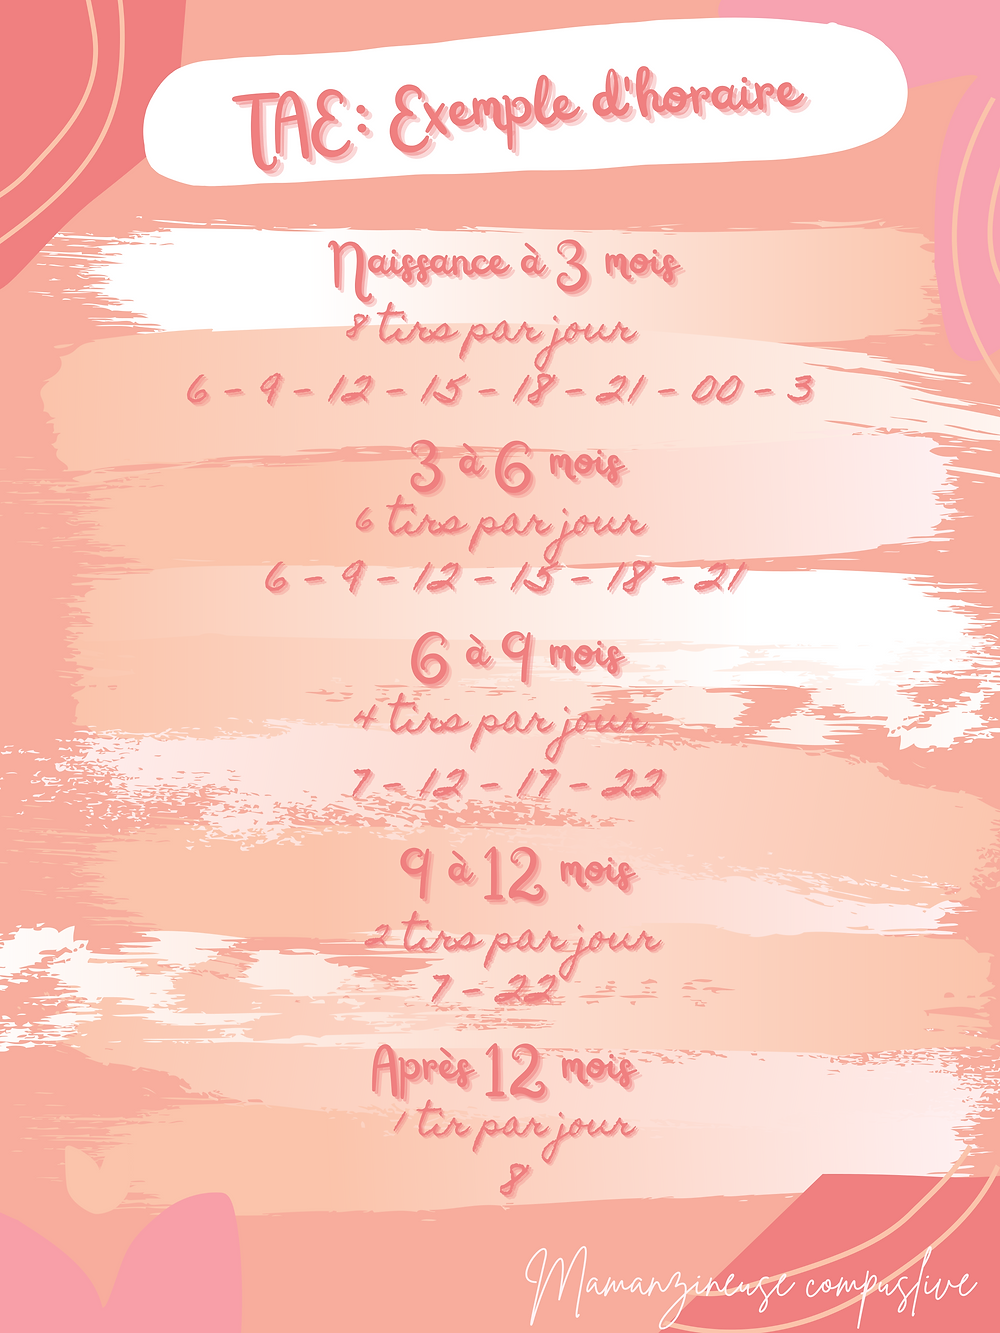 TAE: Exemple d'horaire
Naissance à 3 mois
8 tirs par jour
6 - 9 - 12 - 15 - 18 - 21 - 00 - 3
3 à 6 mois
6 tirs par jour
6 - 9 - 12 - 15 - 18 - 21
6 à 9 mois
4 tirs par jour
7 - 12 - 17 - 22
9 à 12 mois
2 tirs par jour
7 - 22
Après 12 mois
1 tir par jour
8
Mamanzineuse compuslive